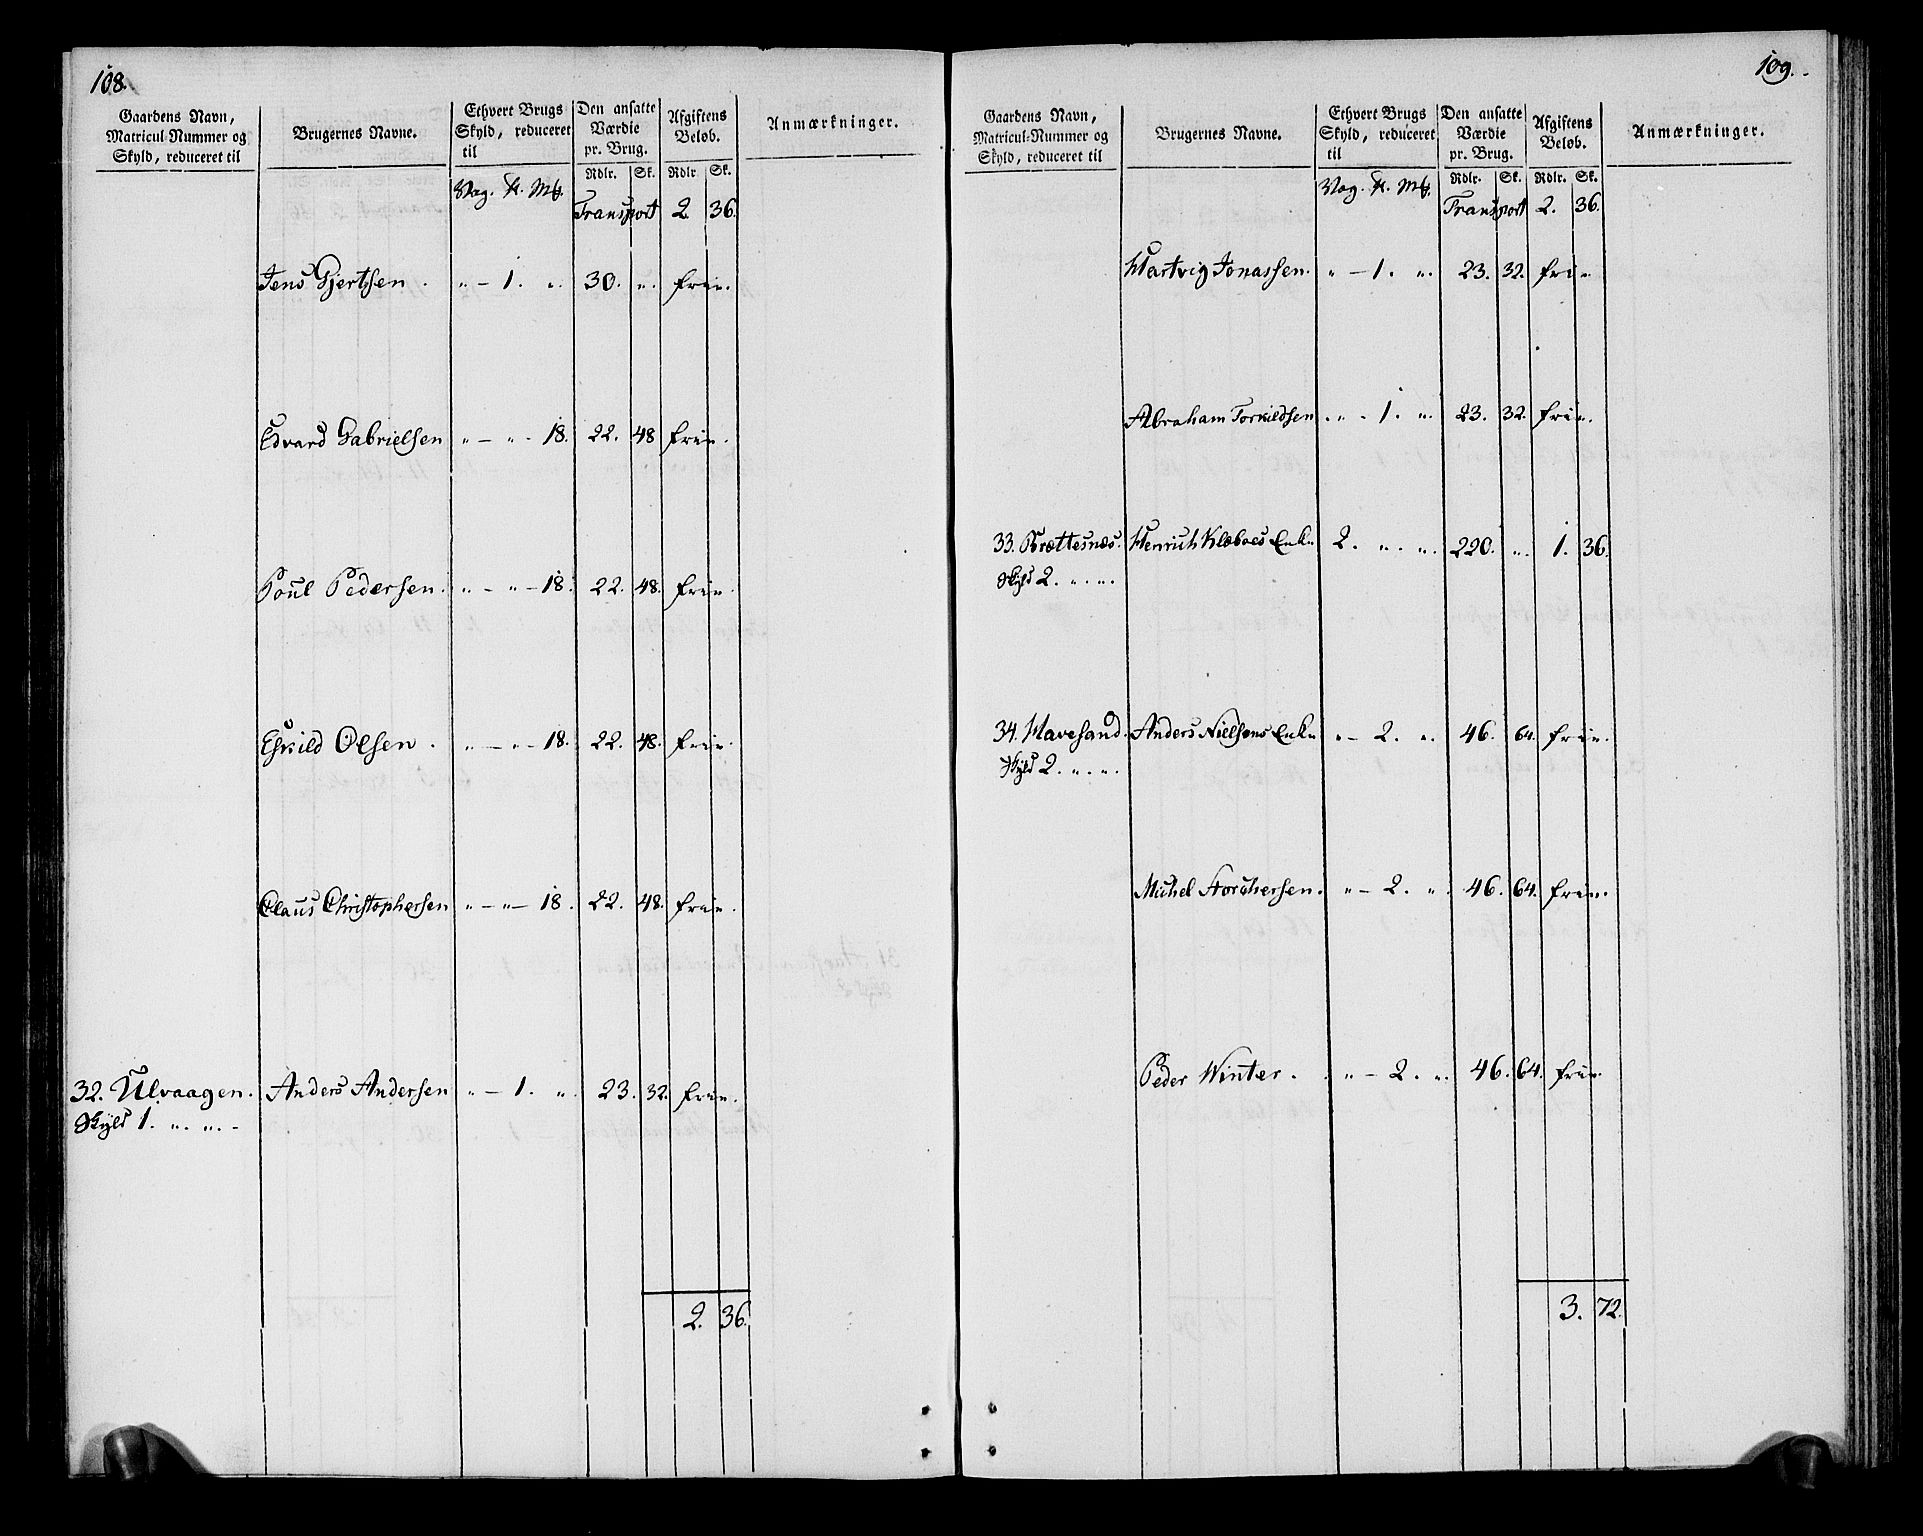 108.
Gaardens Navn, Matricul-Nummer og Skyld, reduceret til
Brugernes Navne.
Ethvert Brugs Skyld, reduceret til
Den ansatte Værdie pr. Brug.
Afgiftens Beløb.
Anmærkninger.
Rdlr. Sk. Rdlr. Sk.
Vog. ℔. Mk.
Transport 2. 36.
Jens Gjertsen. „ — 1. „. 30. „. frie.
Edvard Gabrielsen „ — „ - 18. 22. 48 frie.
Poul Pedersen. „ - „ — 18. 22. 48. frie.
Eskild Olsen. „ — „ - 18. 22. 48. frie.
Claus Christophersen „ — „ — 18. 22. 48. frie.
32. Ulvaagen. Anders Andersen „ — 1. „. 23. 32. frie.
Skyld 1. „. „. -
2. 36.
109.
Gaardens Navn, Matricul-Nummer og Skyld, reduceret til
Brugernes Navne.
Ethvert Brugs Skyld, reduceret til
Den ansatte Værdie pr. Brug.
Afgiftens Beløb.
Anmærkninger.
Rdlr. Sk. Rdlr. Sk.
Vog. ℔. Mk.
Transport 2. 36.
Hartvig Jonassen. „ — 1. „. 23. 32. frie
Abraham Torkildsen „ - 1. „. 23. 32. frie.
33. Brettesnæs. Henrich Klæboes Enke 2. „. „. 220. „. 1. 36.
Skyld 2. „. „.
34. Havesand. Anders Nielsens Enke „ — 2. „. 46. 64. frie.
Skyld 2. „. „.
Michel Storchersen. „ — 2. „. 46. 64. frie.
Peder Winter. „ — 2. „. 46. 64. frie.
3. 72.